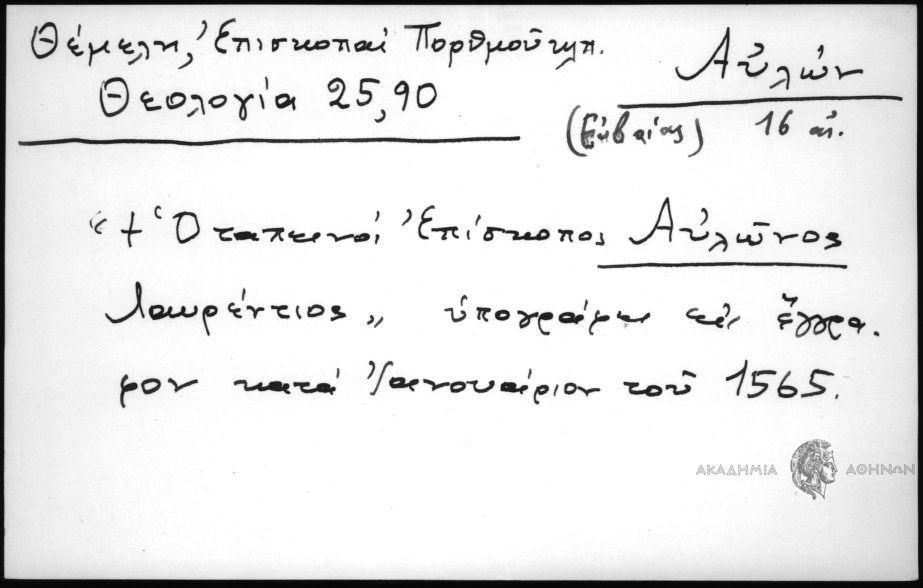 Θέμελη, Ἐπισκοπαί Πορθμοῦ κλπ.
Θεολογία 25,90
Αὐλών
(Εὐβοίας) 16 αἰ.
"+ Ὁ ταπεινός Ἐπίσκοπος Αὐλῶνος
Λαυρέντιος„ ὑπογράφει εἰς ἔγγρα.
φον κατά Ἰανουάριον τοῦ 1565.
ΑΚΑΔΗΜΙΑ ΑΘΗΝΩΝ